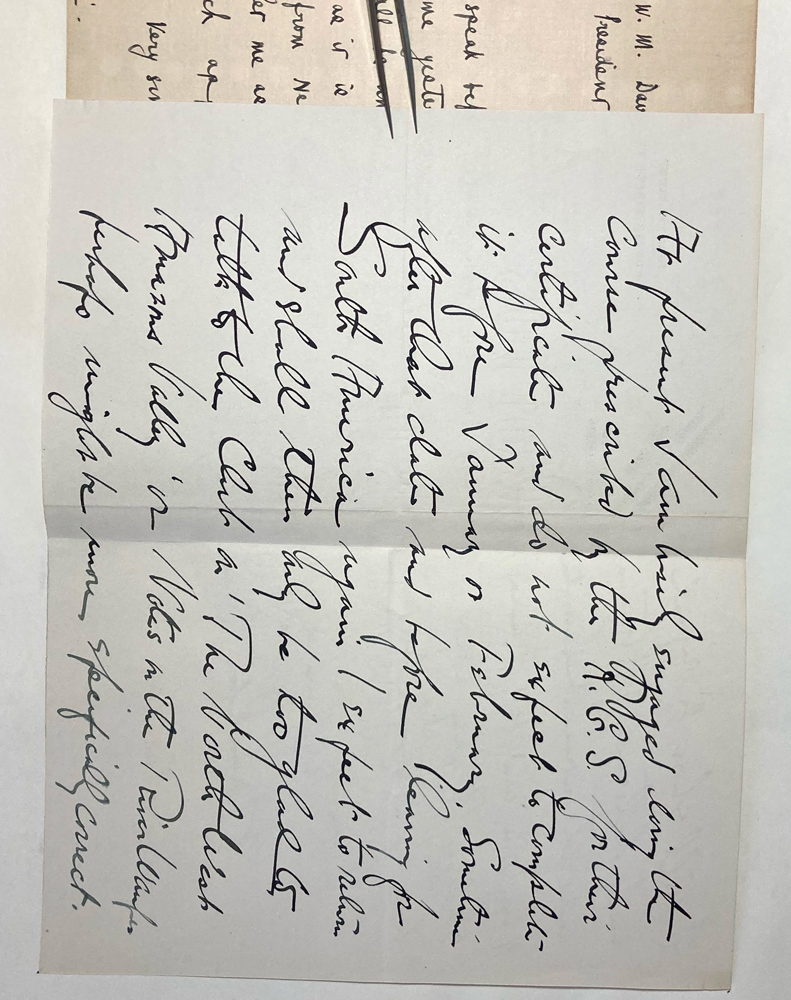 W. M. Dav
President
speak bef
me yeste
all be un
as it is
from Ne
er me as
ch ap
Very sin
At present I am busily engaged doing the
Course prescribed by the R.G.S. for their
Certificate and do not expect to complete
it before January or February. Sometime
after that date and before leaving for
South America again I expect to return
and shall then only be too glad to
talk to the Club on 'The North West
Amazons Valley' or Notes on the
perhaps might be more specifically correct.